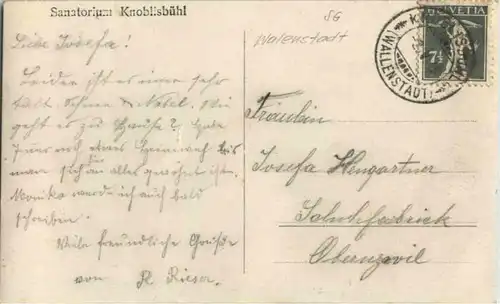 Sanatorium Knoblisbühl
SG
Walenstadt
HELVETIA
7½
(WALLENSTADT)
Liebe Josefa!
Leider ist es immer sehr
kalt Schnee & Nebel. Wie
geht es zu Hause? Habe
immer noch etwas Heimweh bis
man sich an alles gewöhnt ist.
Monika werde ich auch bald
schreiben.
Viele freundliche Grüsse
von R. Rieser.
Fräulein
Josefa Hengartner
Schuhfabrick
Oberuzwil